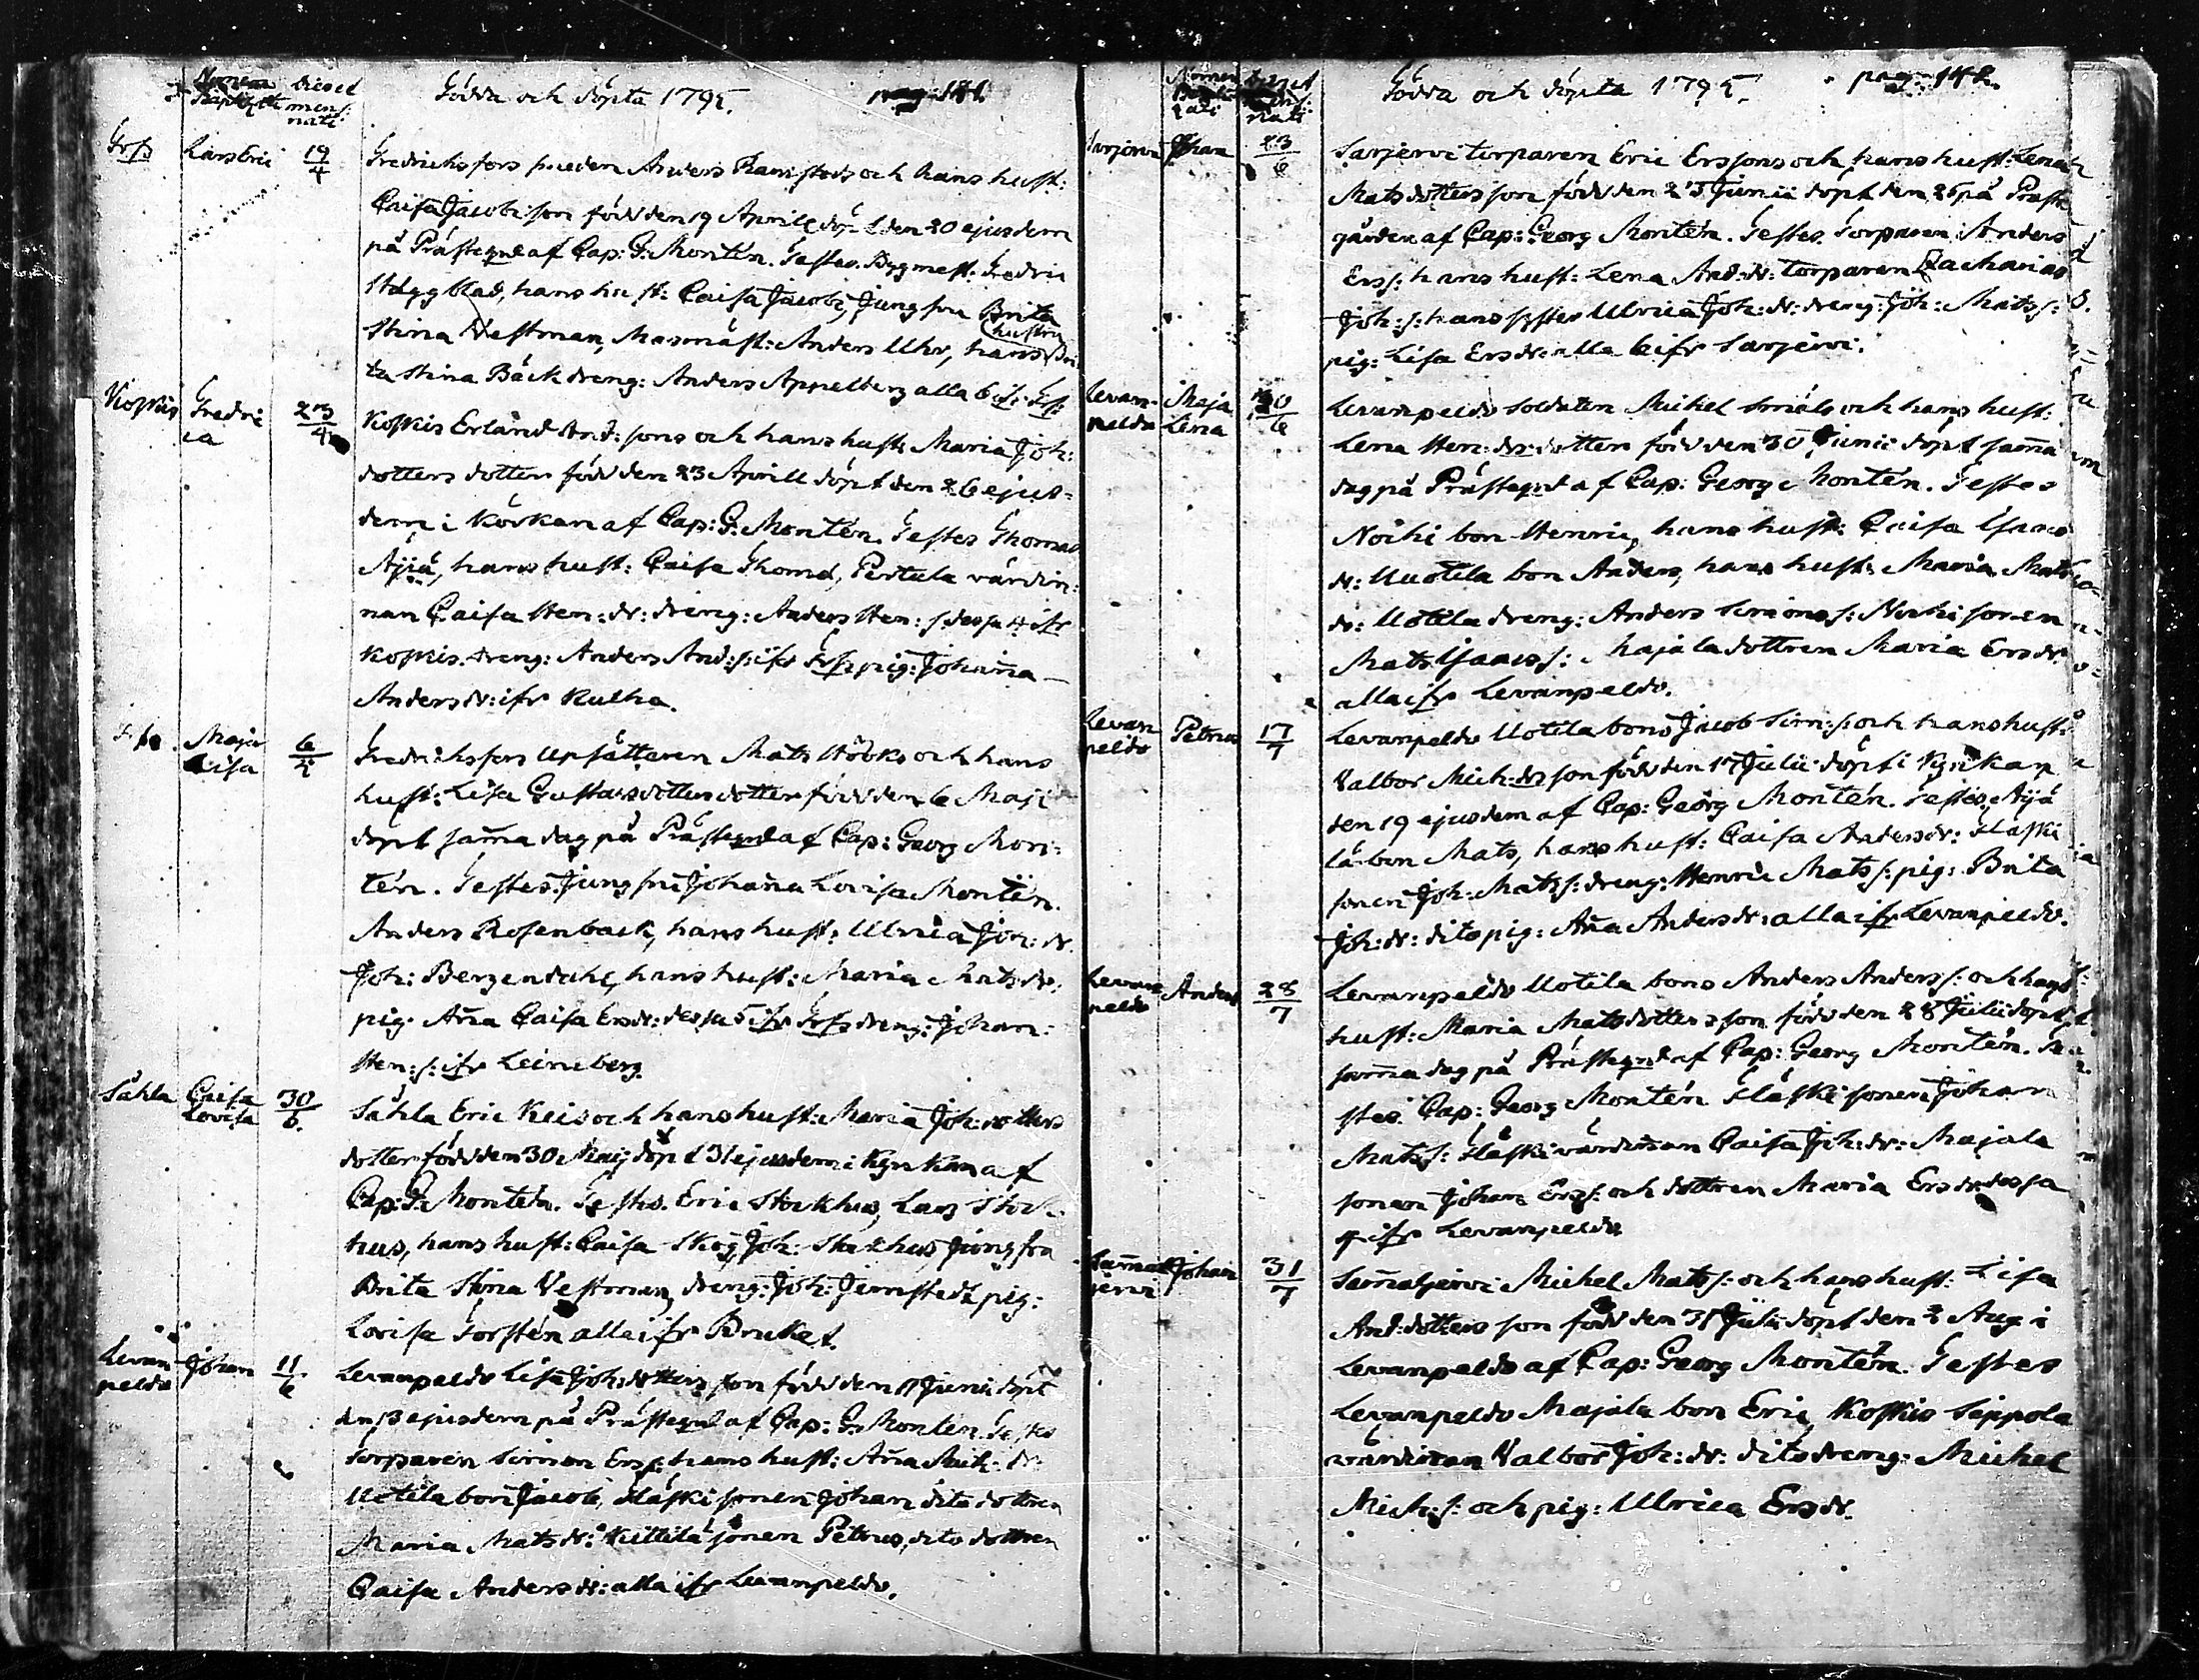 Nomen Baptizati
Dies et mens: nati
Födda och döpta 1795.
pag: 181.
Frfs
Lars Eric
19/4
Fredrichsfors smeden Anders Ramstedts och hans hust:
Caisa Jacobi son född den 19 Aprill döpt den 20 ejusdem
på Prästegrd af Cap: G: Montén. Testes. Bygmest. Fredric
Häggblad, hans hust: Caisa Jacobi, Jungfru Brita
Stina Vestman, Masmäst: Anders Uhr, hans hustru Bri
ta Stina Bäck dreng: Anders Appelberg alla 6 ifr. Frfs.
Koskis
Fredri
ca
23/4
Koskis Erland And: sons och hans hust: Maria Joh:
dotters dotter född den 23 Aprill döpt den 26 ejus-
dem i Körkan af Cap: G. Montén. Testes Thomas
Äijä, hans hust: Caisa Thomd, Pertula värdin-
nan Caisa Hen: dr: dreng: Anders Hen: s. dessa 4 ifr
Koskis. dreng: Anders And: s: ifr Frfs pig: Johanna
Anders dr: ifr Kulha.
Frfs.
Maja
Lisa
6/4
Fredrichsfors Upsättaren Mats Hööks och hans
hust: Lisa Gustavsdotters dotter född den 6 Maji
döpt samma dag på Prästegrd af Cap: Georg Mon-
tén. Testes. Jungfru Johanna Lovisa Montén.
Anders Rosenback, hans hust: Ulrica Joh: dr.
Joh: Bergendahl, hans hust: Maria Mats dr.
pig. Anna Caisa Ers dr: dessa 5 ifr Frfs dreng: Johan
Hen: s: ifr Leineberg.
Sähla
Caisa
Lovisa
30/5.
Sähla Eric Keis och hans hust: Maria Joh: dotters
dotter född den 30 Maij döpt 31 ejusdem i Kyrkan af
Cap: G. Montén. Testes. Eric Stockhus, Lars Stock-
hus, hans hust: Caisa Skog, Joh: Stockhus, Jungfru
Brita Stina Vestman, dreng: Joh: Jernstedt, pig:
Lovisa Torstén alla ifr Bruket.
Levan
peldo
Johan
11/6
Levanpeldo Lisa Joh: dotters son född den 11 Junii döpt
den 13 ejusdem på Prästegrd af Cap: G. Montén. Testes
Torparen Simon Ers s: hans hust: Anna Mich: dr
Uotila bon Jacob, Häski sonen Johan dito dottren
Maria Mats dr: Kuttila sonen Petrus, dito dottren
Caisa Anders dr: alla ifr Levanpeldo.
Nomen Baptizati
Dies et mens: nati
Födda och döpta 1795.
pag: 182.
Sarjervi
Johan
23/6
Sarjervi torparen Eric Erssons och hans hust: Lena
Mats dotters son född den 23 Junii döpt den 25 på Präste
gården af Cap: Georg Montén. Testes. Torparen Anders
Ers s: hans hust: Lena And: dr: torparen Zacharias
Joh: s: hans syster Ulrica Joh: dr: dreng: Joh: Mats s:
pig: Lisa Ers dr: alla 6 ifr Sarjervi.
Levan-
peldo
Maja
Lena
30/6
Levanpeldo soldaten Mickel Smäls och hans hust:
Lena Hen: drs dotter född den 30 Junii döpt samma
dag på Prästegrd af Cap: Georg Montén. Testes
Noihi bon Henric, hans hust: Caisa Isacs
dr: Uuotila bon Anders, hans hust: Maria Mats
dr: Uotila dreng: Anders Simons s: Noihi sonen
Mats Isacs s: Majala dottren Maria Ers dr
alla ifr Levanpeldo.
Levan
peldo
Petrus
17/7
Levanpeldo Uotila bons Jacob Sim: s: och hans hust:
Valbor Mich: drs son född den 17 Julii döpt i Kyrkan
den 19 ejusdem af Cap: Georg Montén. Testes. Äijä
lä bon Mats, hans hust: Caisa Anders dr: Häski
sonen Joh: Mats s: dreng: Henric Mats s: pig: Brita
Joh: dr: dito pig: Anna Anders dr: alla ifr Levanpeldo.
Levan
peldo
Anders
28/7
Levanpeldo Uotila bons Anders Anders s: och hans
hust: Maria Matsdotters son född den 28 Julii döpt
samma dag på Prästegrd af Cap: Georg Montén. Te
stes. Cap: Georg Montén Häski sonen Johan
Mats s: Häski värdinnan Caisa Joh: dr: Majala
sonen Johan Ers s: och dottren Maria Ers dr dessa
4 ifr Levanpeldo.
Sammal
jervi
Johan
31/7
Sammaljervi Michel Mats s: och hans hust: Lisa
And: dotters son född den 31 Julii döpt den 2 Aug i
Levanpeldo af Cap: Georg Montén. Testes
Levanpeldo Majala bon Eric, Koskis Seppola
värdinnan Valbor Joh: dr: dito dreng: Michel
Mich: s: och pig: Ulrica Ers dr.